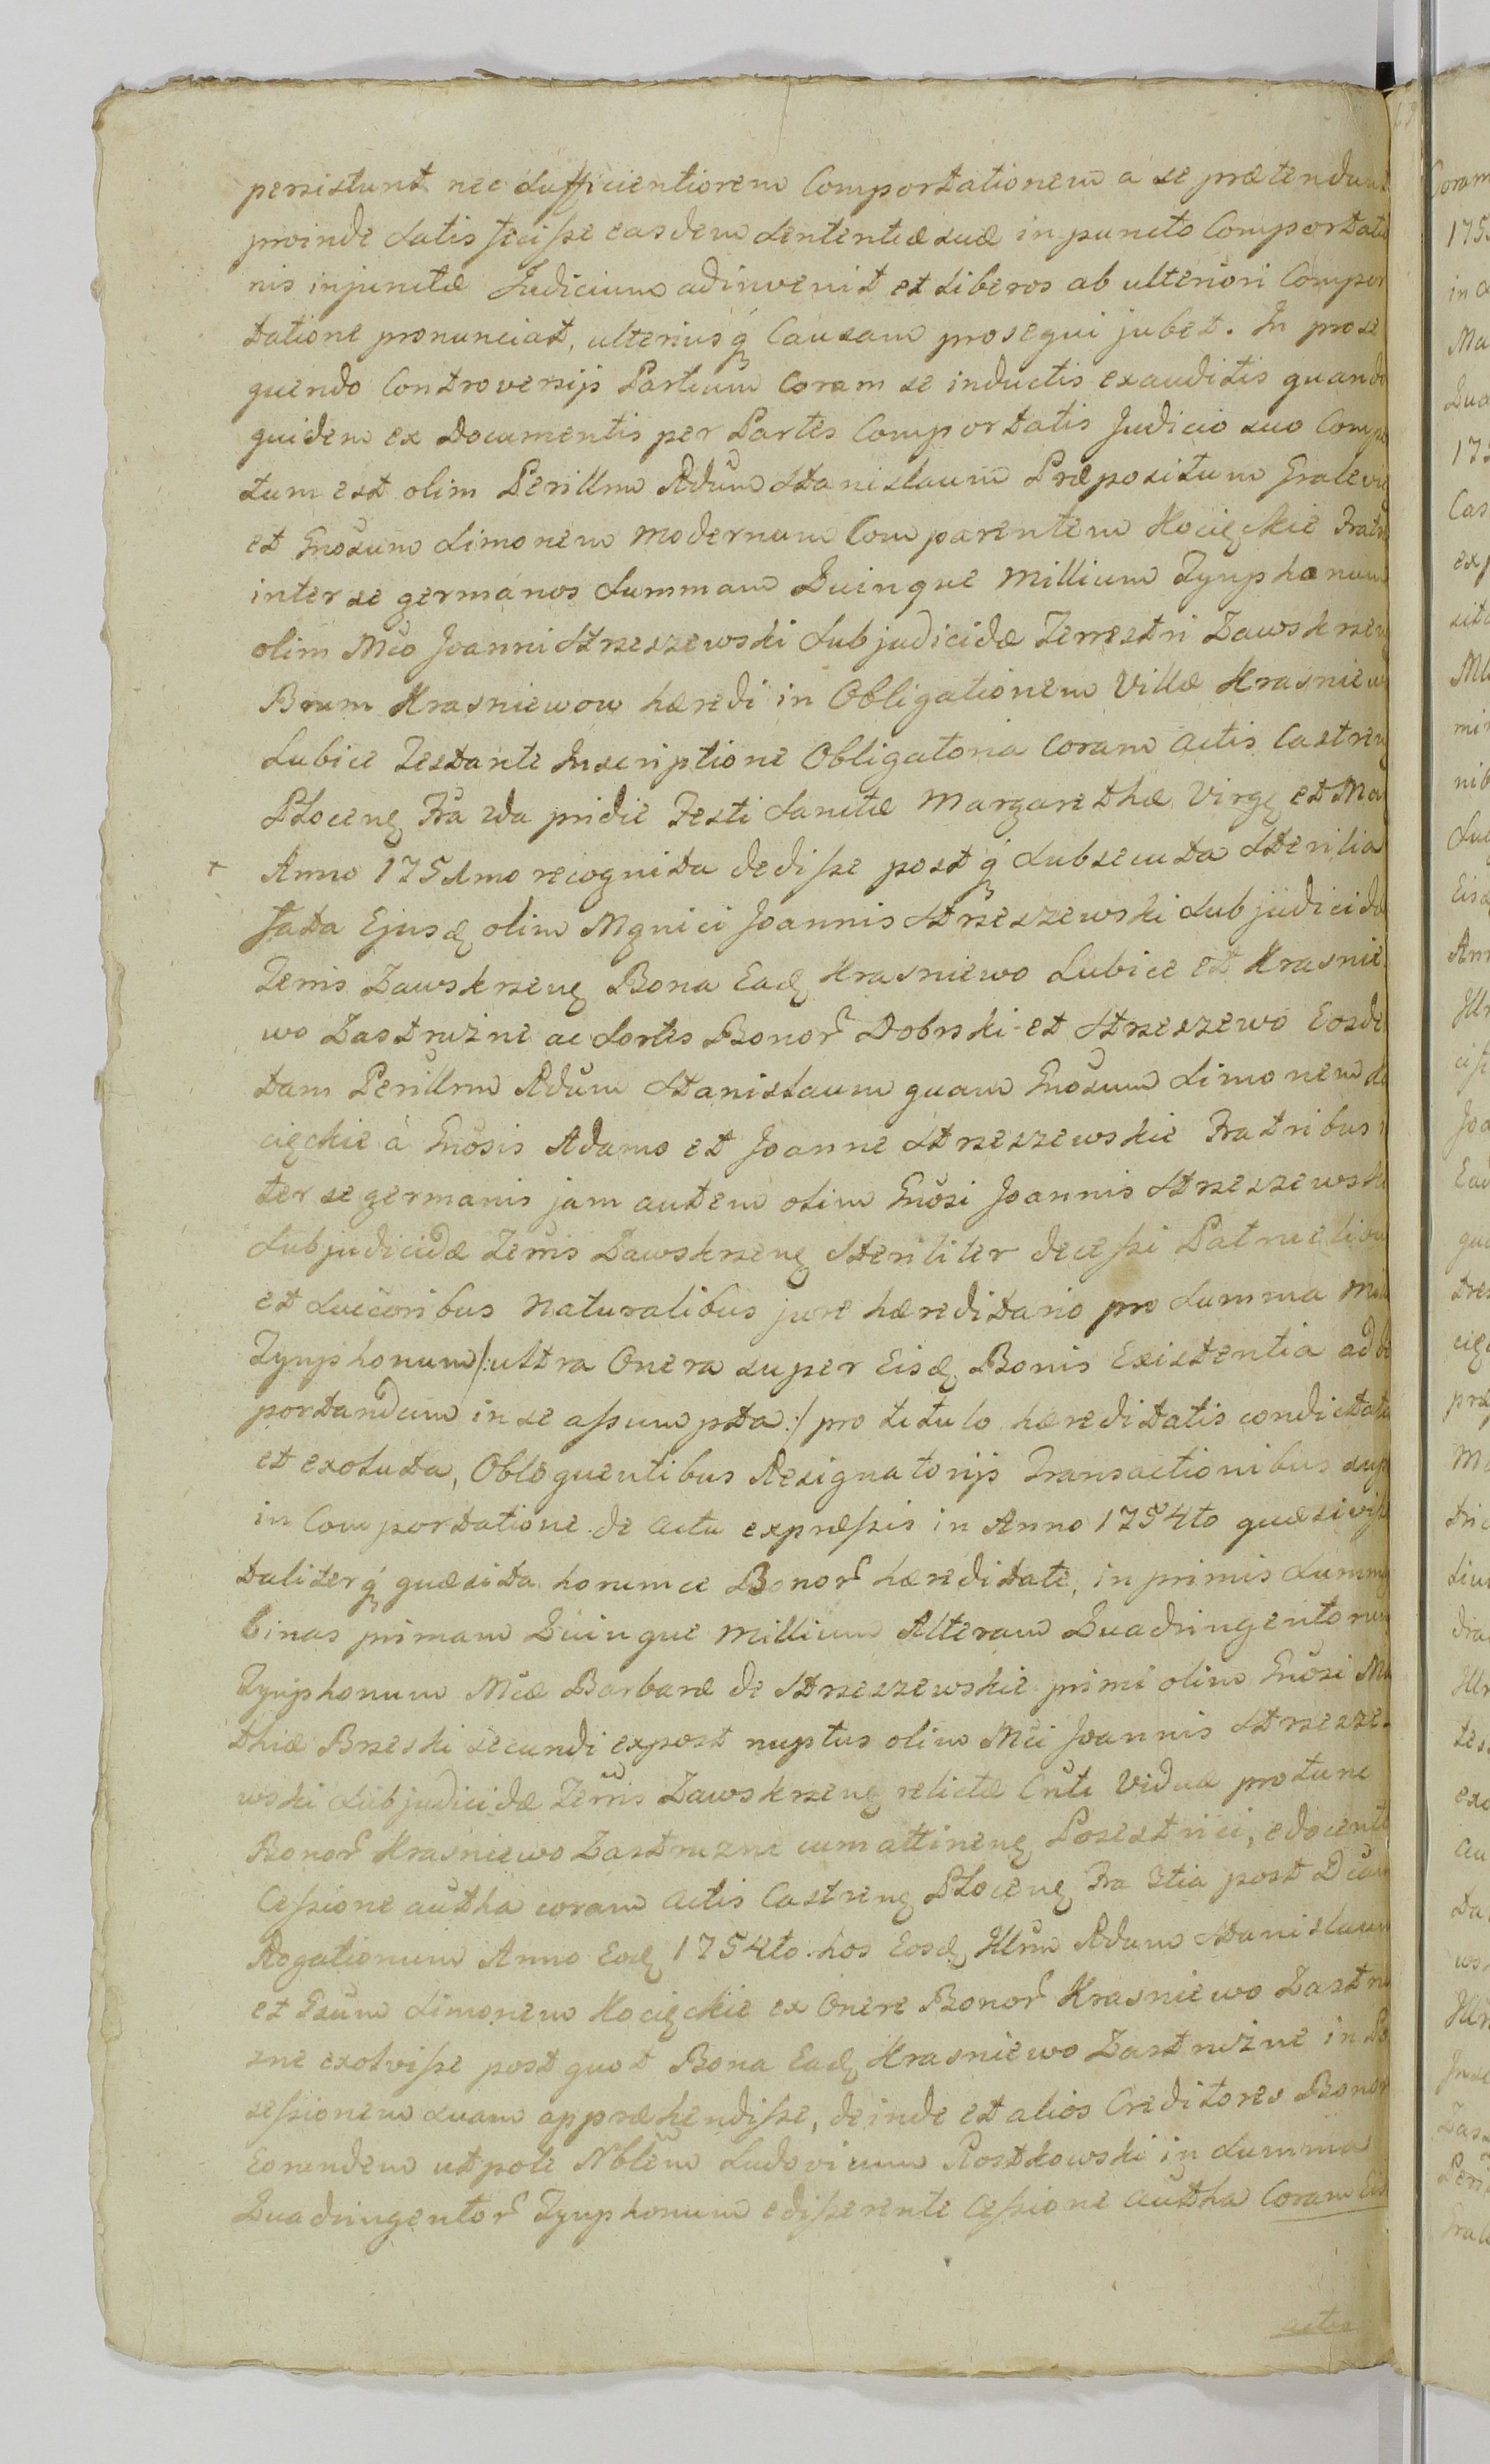 persistunt nec Sufficientiorem Comportationem a se prætendunt
proinde Satis fecisse easdem Sententiæ suæ in puncto Comportatio
nis injunctæ Judicium adinvenit et Liberos ab ulteriori Compor
tatione pronunciat, ulteriusq́ Causam prosequi jubet. In prose
quendo Controversijs Partium Coram se inductis exauditis quando
quidem ex Documentis per Partes Comportatis Judicio suo Comper
tum est olim Perillrm Rdum Stanislaum Præpositum Gralevieñ
et Gnosum Simonem modernum Comparentem Kocięckie Fratres
inter se germanos Summam Quinque Millium Tynphonum
olim Mco Joanni Strzeszewski Subjudicidæ Terrestri Zawskrzeñ
Bnrum Krasniewow hæredi in Obligationem Villæ Krasniewo
Lubice Testante Inscriptione Obligatoria Coram Actis Castreñ
Ploceng Fra 2da pridie Festi Sanctæ Margarethæ Virg. et Mar
+ Anno 1751mo recognita dedisse post q́ Subsecuta Sterilia
fata Ejusd olim Mgnici Joannis Strzeszewski Subjudicidæ
Terris Zawskrzeng Bona Ead Krasniewo Lubice et Krasnie
wo Zastruźne ac Sortes Bonor Dobrski et Strzeszewo Eosdem
tam Perillrm Rdum Stanislaum quam Gnosum Simonem Ko
cięckie à Gnosis Adamo et Joanne Strzeszewskie Fratribus in
ter se germanis jam autem olim Gnosi Joannis Strzeszewski
Subjudicidæ Terris Zawskrzeng Steriliter decessi Patruelibus
et Succoribus Naturalibus jure hæreditario pro Summa Mille
Tynphonum /: ultra Onera super Eisd Bonis Existentia ad de
portandum in se assumpta :/ pro titulo hæreditatis condictata
et exoluta, Obloquentibus Resignatorijs Transactionibus sup
in Comportatione de actu expressis in Anno 1754to quæsivisse
taliterq́ quæsita horumce Bonor hæreditate, in primis Summas
binas primam Quinque Millium Alteram Quadringentorum
Tynphonum Mcæ Barbaræ de Strzeszewskie primi olim Gnosi Ma
thiæ Brzeski secundi expost nuptus olim Mci Joannis Strzesze
wski Subjudicidæ Terris Zawskrzeng relictæ Cnti Viduæ pro tunc
Bonor Krasniewo Zastruzne cum attineng Posestrici, edocente
Cessione autha coram Actis Castreng Ploceng Fra 3tia post Dcam
Rogationum Anno Eod 1754to hos Eosd Illrm Rdum Stanislaum
et Gsum Simonem Kocięckie ex Onere Bonor Krasniewo Zastru
zne exolvisse post quot Bona Ead Krasniewo Zastruźne in Pos
sessionem Suam appræhendisse, deinde et alios Creditores Bonor
Eorundem utpote Nblem Ludovicum Rostkowski in Summa
Quadringentor Tynphonum edisserente Cessione autha Coram Eis
actis